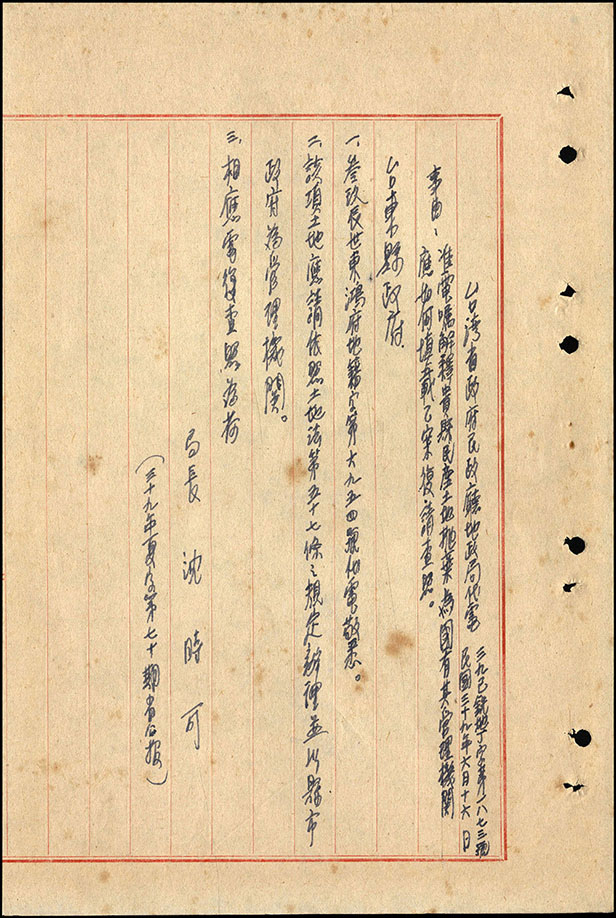 台湾省政府民政廳地政局代電
三九巳 地丁字第一八七三號
民國三十九年六月十六日
事由：准電囑解釋貴縣民產土地拋棄為國有其管理機關
應如何填載乙案復請查照。
台東縣政府
一、叁玖辰世東鴻府地籍字第六九五四號代電敬悉。
二、該項土地應請依照土地法第五十七條之規定辦理並以縣市
政府為管理機関。
三、相應電復查照為荷
局長 沈時可
（三十九年夏字第七十期省公報）